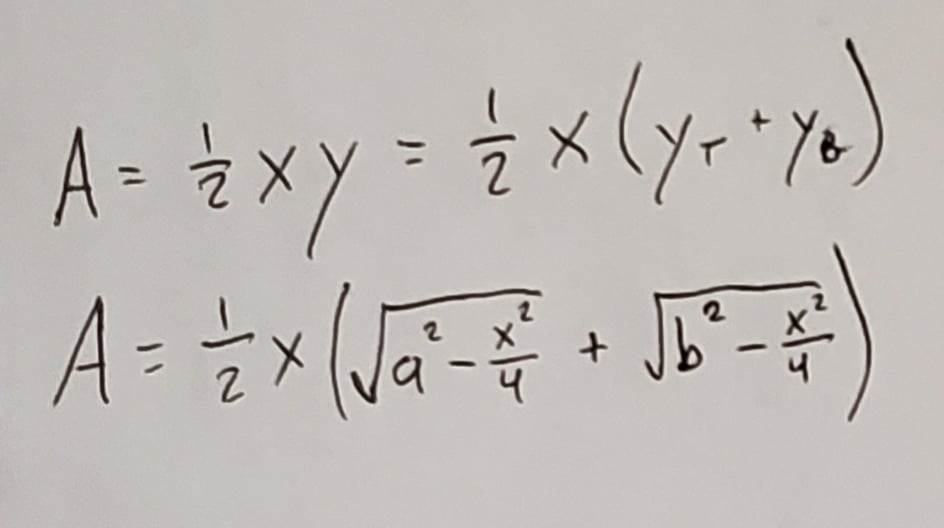 A = ½ x y = ½ x (y_T + y_B)
A = ½ x (√(a² − x²/4) + √(b² − x²/4))